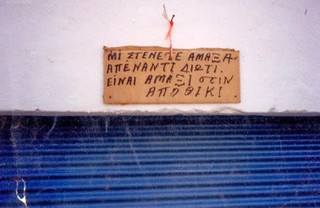 ΜΙ ΣΤΕΝΕΤΕ ΑΜΑΞΑ
ΑΠΕΝΑΝΤΙ ΔΙΩΤΙ.
ΕΙΝΑΙ ΑΜΑΞΙ ΣΤΙΝ
ΑΠΟΘΙΚΙ